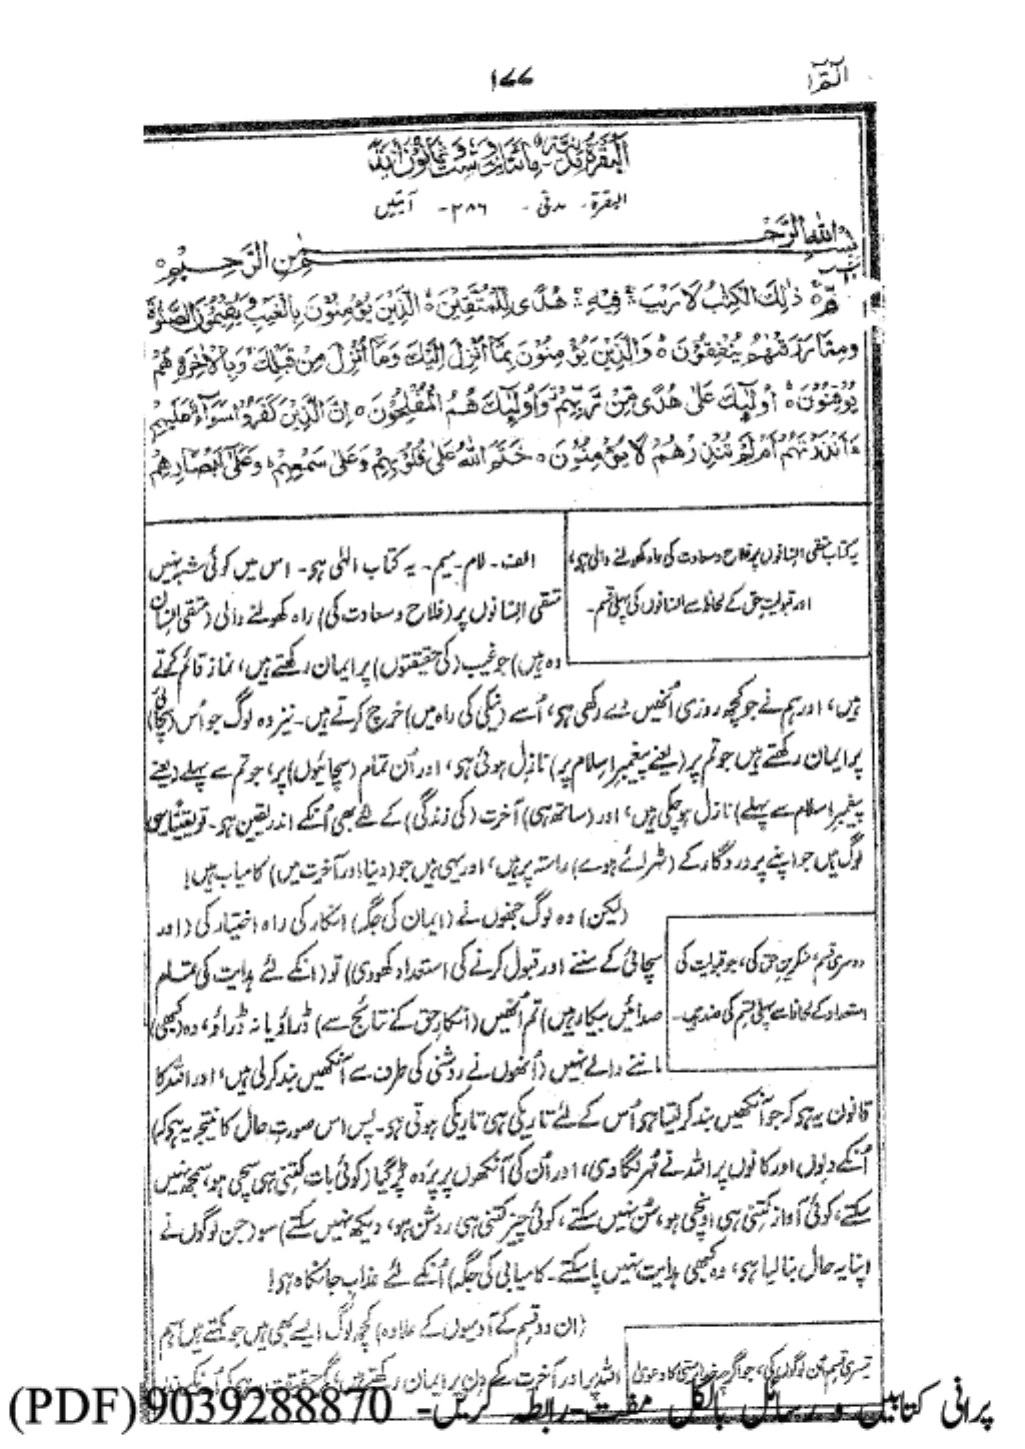 ۱۷۷
الٓمّٓ ۱
البقرة۔ مدنی۔ ۲۸۶۔ آیتیں
بِسْمِ اللهِ الرَّحْمٰنِ الرَّحِيْمِ
ذٰلِكَ الْكِتٰبُ لَا رَيْبَ فِيْهِ هُدًى لِّلْمُتَّقِيْنَ الَّذِيْنَ يُؤْمِنُوْنَ بِالْغَيْبِ وَيُقِيْمُوْنَ الصَّلٰوةَ
وَمِمَّا رَزَقْنٰهُمْ يُنْفِقُوْنَ وَالَّذِيْنَ يُؤْمِنُوْنَ بِمَآ اُنْزِلَ اِلَيْكَ وَمَآ اُنْزِلَ مِنْ قَبْلِكَ وَبِالْاٰخِرَةِ هُمْ
يُوْقِنُوْنَ اُولٰٓئِكَ عَلٰى هُدًى مِّنْ رَّبِّهِمْ وَاُولٰٓئِكَ هُمُ الْمُفْلِحُوْنَ اِنَّ الَّذِيْنَ كَفَرُوْا سَوَآءٌ عَلَيْهِمْ
ءَاَنْذَرْتَهُمْ اَمْ لَمْ تُنْذِرْهُمْ لَا يُؤْمِنُوْنَ خَتَمَ اللهُ عَلٰى قُلُوْبِهِمْ وَعَلٰى سَمْعِهِمْ وَعَلٰٓى اَبْصَارِهِمْ
یہ کتاب متقی انسانوں پر فلاح و سعادت کی راہ کھولنے والی ہو،
اور قبولیتِ حق کے لحاظ سے انسانوں کی پہلی قسم۔
الف۔ لام۔ میم۔ یہ کتاب الٰہی ہو۔ اس میں کوئی شبہ نہیں
متقی انسانوں پر (فلاح و سعادت کی) راہ کھولنے والی (متقی انسان
وہ ہیں) جو غیب (کی حقیقتوں) پر ایمان رکھتے ہیں، نماز قائم کرتے
ہیں، اور ہم نے جو کچھ روزی اُنھیں دے رکھی ہو، اُسے (نیکی کی راہ میں) خرچ کرتے ہیں۔ نیز وہ لوگ جو اُس (سچائی)
پر ایمان رکھتے ہیں جو تم پر (یعنے پیغمبرِ اسلام پر) نازل ہوئی ہو، اور اُن تمام (سچائیوں) پر، جو تم سے پہلے (یعنے
پیغمبرِ اسلام سے پہلے) نازل ہوچکی ہیں، اور (ساتھ ہی) آخرت (کی زندگی) کے لئے بھی اُنکے اندر یقین ہو۔ تو یقیناً یہی
لوگ ہیں جو اپنے پروردگار کے (ٹھرائے ہوے) راستہ پر ہیں، اور یہی ہیں جو (دنیا اور آخرت میں) کامیاب ہیں!
(لیکن) وہ لوگ جنھوں نے (ایمان کی جگہ) انکار کی راہ اختیار کی (اور
دوسری قسم، منکرینِ حق کی، جو قبولیت کی
استعداد کے لحاظ سے پہلی قسم کی ضد ہے۔
سچائی کے سننے اور قبول کرنے کی استعداد کھودی) تو (انکے لئے ہدایت کی تمام
صدائیں بیکار ہیں) تم اُنھیں (انکارِ حق کے نتائج سے) ڈراؤ یا نہ ڈراؤ، وہ (کبھی)
ماننے والے نہیں (اُنھوں نے روشنی کی طرف سے آنکھیں بند کرلی ہیں، اور اللہ کا
قانون یہ ہو کہ جو آنکھیں بند کرلیتا ہو اُس کے لئے تاریکی ہی تاریکی ہوتی ہو۔ پس اس صورتِ حال کا نتیجہ یہ ہو کہ)
اُنکے دلوں اور کانوں پر اللہ نے مُہر لگادی، اور اُن کی آنکھوں پر پردہ پڑگیا (کوئی بات کتنی ہی سچی ہو، سمجھ نہیں
سکتے، کوئی آواز کتنی ہی اونچی ہو، سُن نہیں سکتے، کوئی چیز کتنی ہی روشن ہو، دیکھ نہیں سکتے) سو (جن لوگوں نے
اپنا یہ حال بنالیا ہو، وہ کبھی ہدایت نہیں پاسکتے۔ کامیابی کی جگہ) اُنکے لئے عذابِ جانکاہ ہو!
(ان دو قسم کے آدمیوں کے علاوہ) کچھ لوگ ایسے بھی ہیں جو کہتے ہیں ہم
تیسری قسم اُن لوگوں کی، جو اگرچہ خدا پرستی کا دعویٰ
اللہ پر اور آخرت کے دن پر ایمان رکھتے ہیں
پرانی کتابیں و رسائل بالکل مفت۔ رابطہ کریں۔ 9039288870 (PDF)